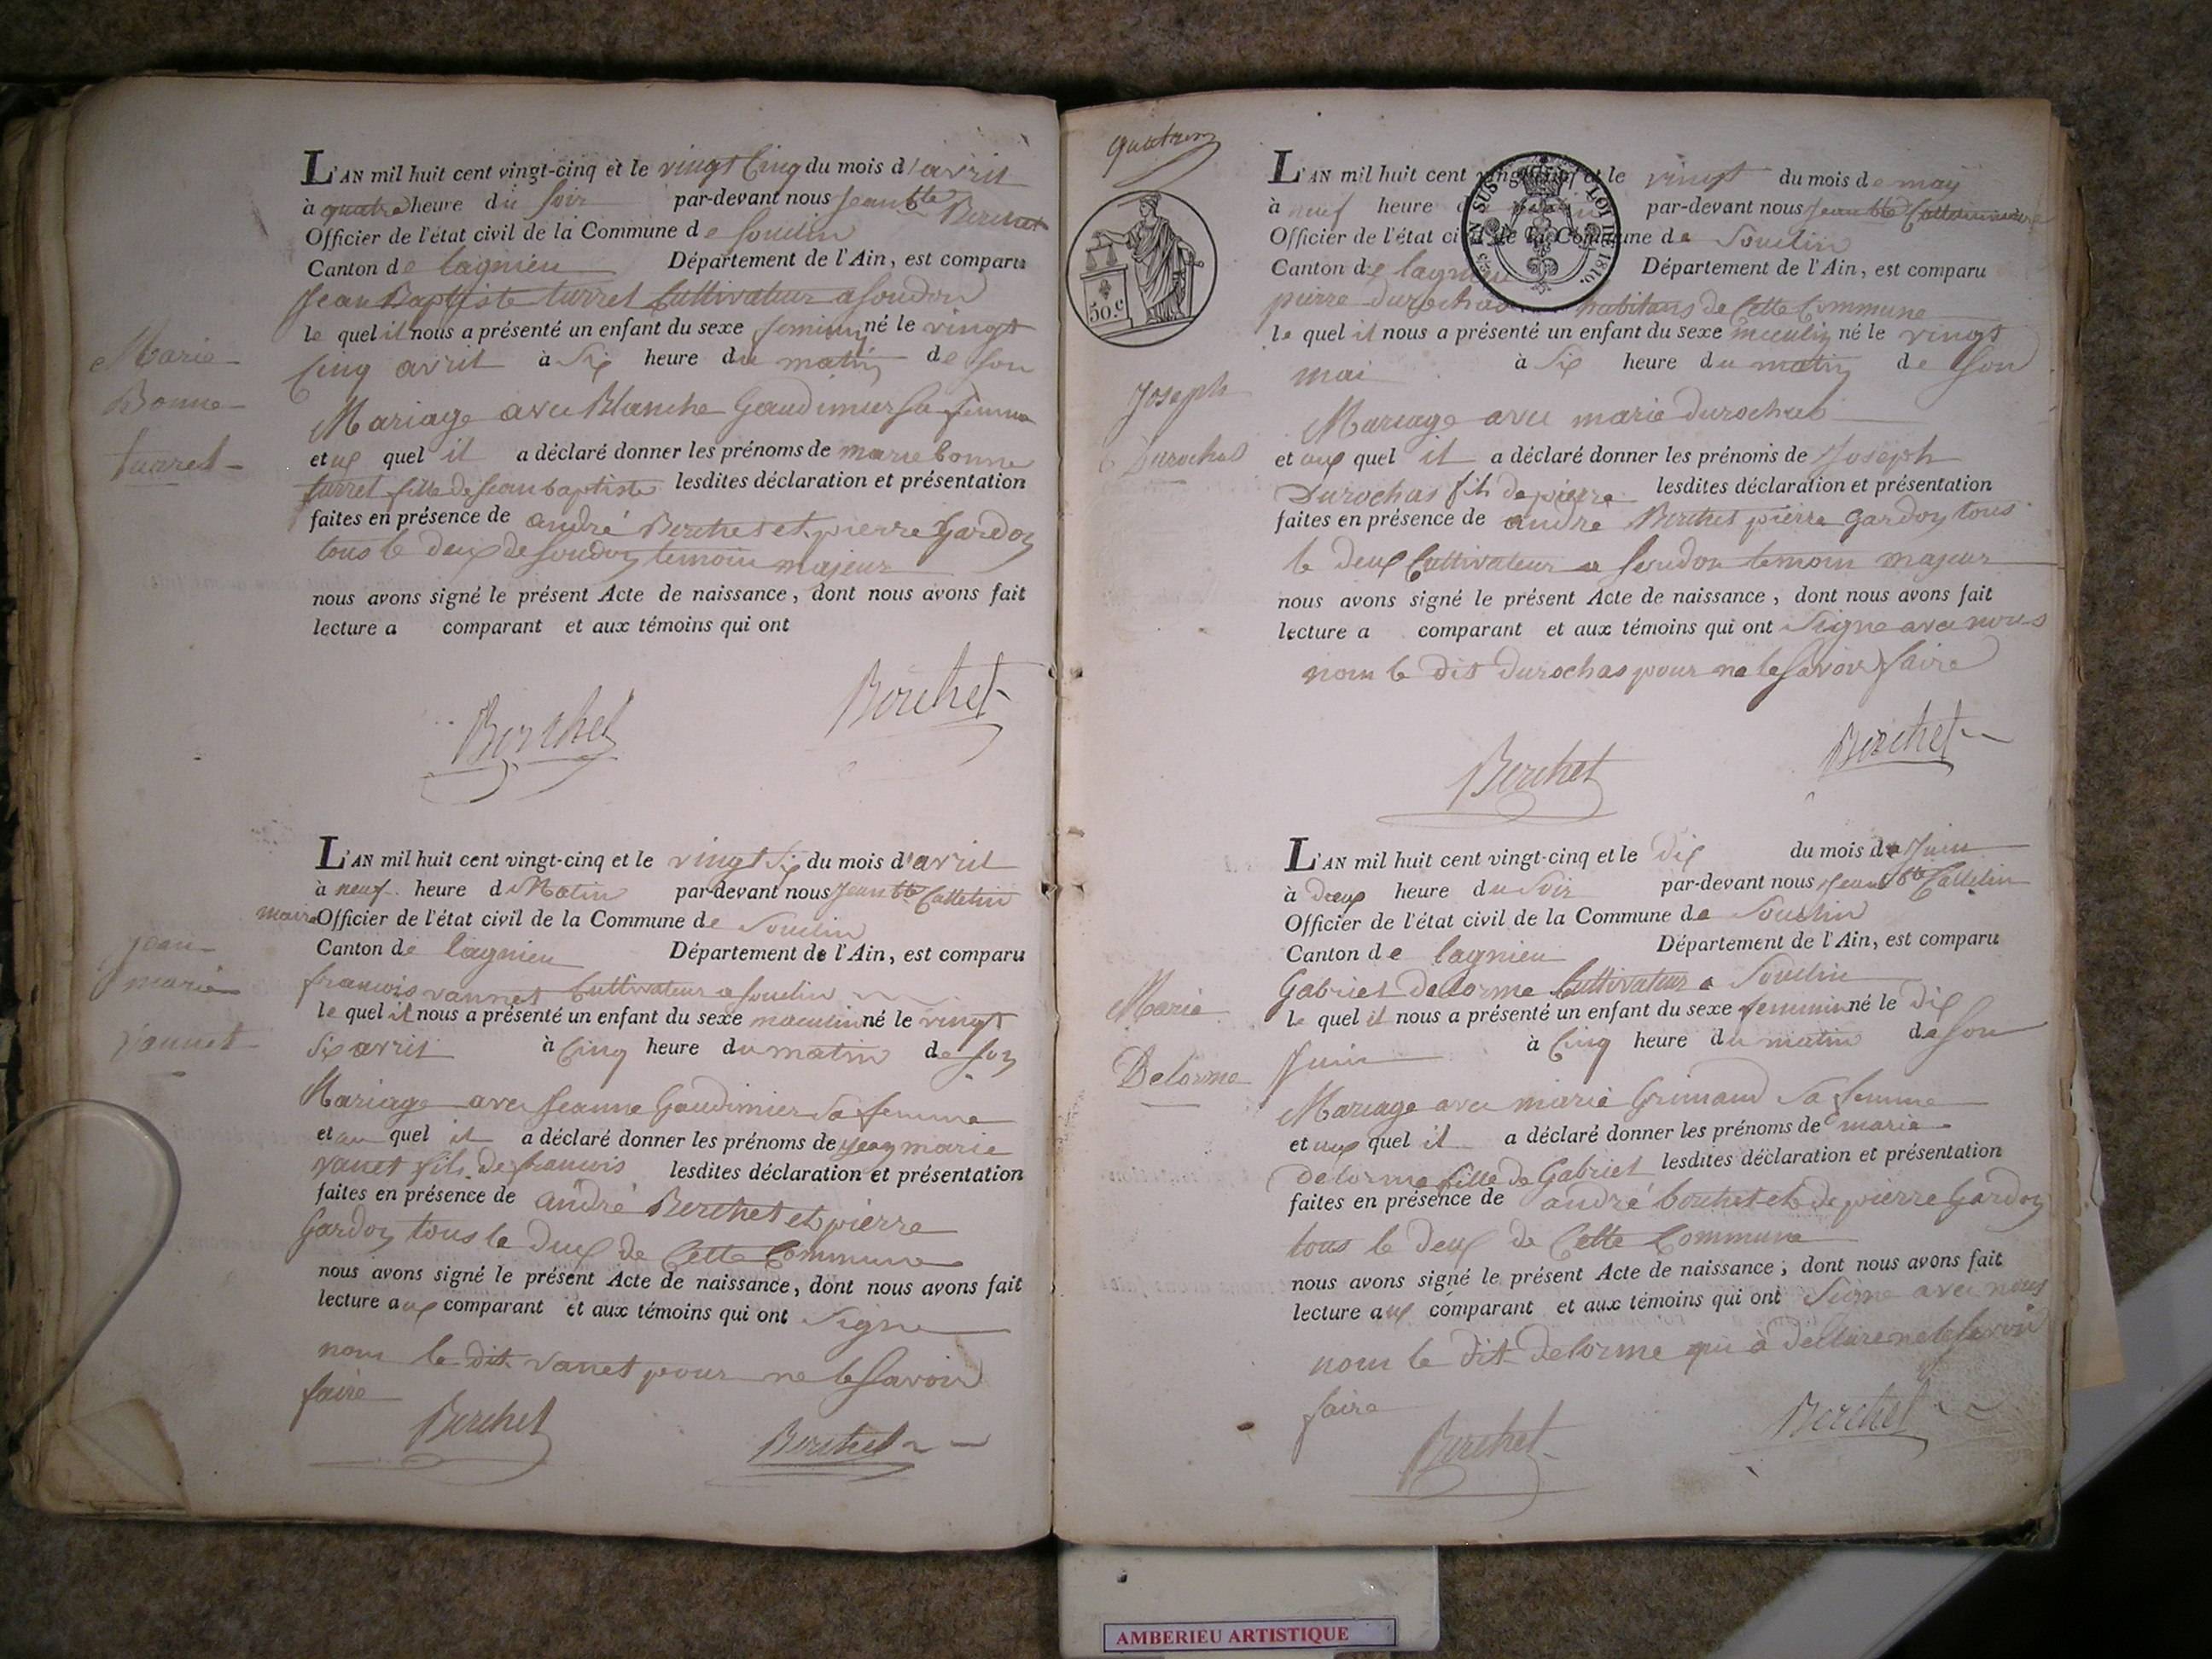 L'AN mil huit cent vingt-cinq et le vingt Cinq du mois d'avril
à quatre heure du soir par-devant nous jean bte Berchet
Officier de l'état civil de la Commune de souclin
Canton de lagnieu Département de l'Ain, est comparu
Jean Baptiste turrel Cultivateur a soudon
le quel il nous a présenté un enfant du sexe feminin né le vingt
Cinq avril à Six heure du matin de son
Mariage avec Blanche Gaudimier sa femme
et aux quel il a déclaré donner les prénoms de marie bonne
turrel fille de jean baptiste lesdites déclaration et présentation
faites en présence de andré Berchet et pierre gardon
tous le deux de soudon temoin majeur
nous avons signé le présent Acte de naissance, dont nous avons fait
lecture a comparant et aux témoins qui ont
Berchet Berchet
Marie
Bonne
L'AN mil huit cent vingt-cinq et le vingt Six du mois d'avril
à neuf heure du Matin par-devant nous jean bte Cattelin
maire Officier de l'état civil de la Commune de Souclin
Canton de lagnieu Département de l'Ain, est comparu
francois vannet Cultivateur a souclin
le quel il nous a présenté un enfant du sexe masculin né le vingt
Six avril à Cinq heure du matin de son
Mariage avec Jeanne Gaudimier sa femme
et au quel il a déclaré donner les prénoms de jean marie
vanet fils de francois lesdites déclaration et présentation
faites en présence de andré Berchet et pierre
Gardon tous le deux de Cette Commune
nous avons signé le présent Acte de naissance, dont nous avons fait
lecture aux comparant et aux témoins qui ont Signe
nom le dit vanet pour ne le savoir
faire
Berchet Berchet
jean
marie
vannet
50.c
EN SUS LOI DE 1816.
L'AN mil huit cent vingt-cinq et le vingt du mois de may
à neuf heure du par-devant nous jean bte
Officier de l'état civil de la Commune de Souclin
Canton de lagnieu Département de l'Ain, est comparu
pierre durochas habitans de Cette Commune
le quel il nous a présenté un enfant du sexe né le vingt
mai à Six heure du matin de son
Mariage avec marie
et aux quel il a déclaré donner les prénoms de Joseph
Durochas fils de pierre lesdites déclaration et présentation
faites en présence de andré Berchet pierre gardon tous
le deux Cultivateur a soudon temoin majeur
nous avons signé le présent Acte de naissance, dont nous avons fait
lecture a comparant et aux témoins qui ont Signe avec nous
nom le dit durochas pour ne le savoir faire
Berchet Berchet
Joseph
Durochas
L'AN mil huit cent vingt-cinq et le dix du mois de Juin
à deux heure du Soir par-devant nous jean bte Cattelin
Officier de l'état civil de la Commune de Souclin
Canton de lagnieu Département de l'Ain, est comparu
Gabriel delorme Cultivateur a Souclin
le quel il nous a présenté un enfant du sexe feminin né le dix
Juin à Cinq heure du matin de son
Mariage avec marie Grimaud sa femme
et aux quel il a déclaré donner les prénoms de marie
delorme fille de Gabriel lesdites déclaration et présentation
faites en présence de andré berchet et de pierre Gardon
tous le deux de Cette Commune
nous avons signé le présent Acte de naissance, dont nous avons fait
lecture aux comparant et aux témoins qui ont Signe avec nous
nom le dit delorme qui à déclare ne le savoir
faire
Berchet Berchet
Marie
Delorme
AMBERIEU ARTISTIQUE